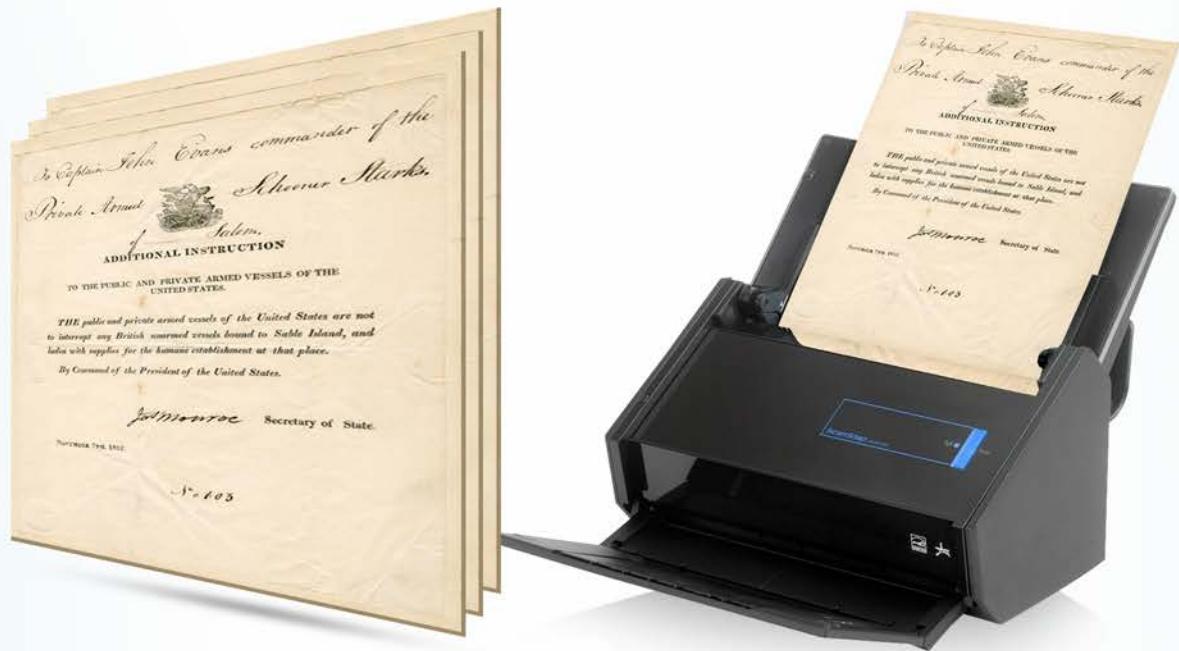 To Captain John Evans commander of the
Private Armed Schooner Starks.
of Salem,
ADDITIONAL INSTRUCTION
TO THE PUBLIC AND PRIVATE ARMED VESSELS OF THE
UNITED STATES.
THE public and private armed vessels of the United States are not
to interrupt any British unarmed vessels bound to Sable Island, and
laden with supplies for the humane establishment at that place.
By Command of the President of the United States.
Jas Monroe Secretary of State.
November 7th, 1812.
No. 103
To Captain John Evans commander of the
Private Armed Schooner Starks.
of Salem,
ADDITIONAL INSTRUCTION
TO THE PUBLIC AND PRIVATE ARMED VESSELS OF THE
UNITED STATES.
THE public and private armed vessels of the United States are not
to interrupt any British unarmed vessels bound to Sable Island, and
laden with supplies for the humane establishment at that place.
By Command of the President of the United States.
Jas Monroe Secretary of State.
November 7th, 1812.
No. 103
ScanSnap